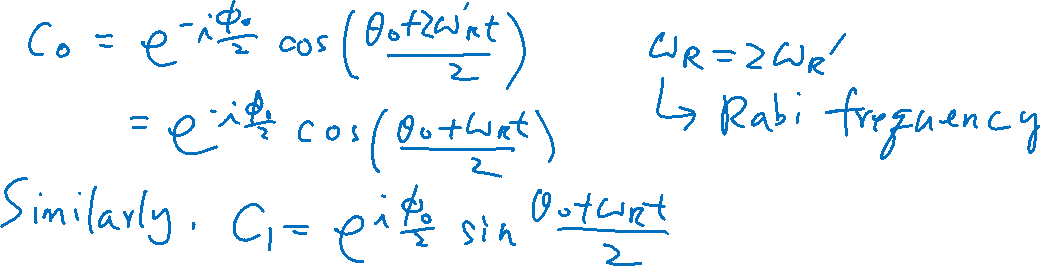 C₀ = e^{-iϕ₀/2} cos((θ₀+2ω_R't)/2)
ω_R = 2ω_R'
= e^{-iϕ₀/2} cos((θ₀+ω_Rt)/2)
↳ Rabi frequency
Similarly, C₁ = e^{iϕ₀/2} sin (θ₀+ω_Rt)/2